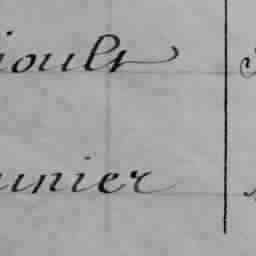 ioult
unier